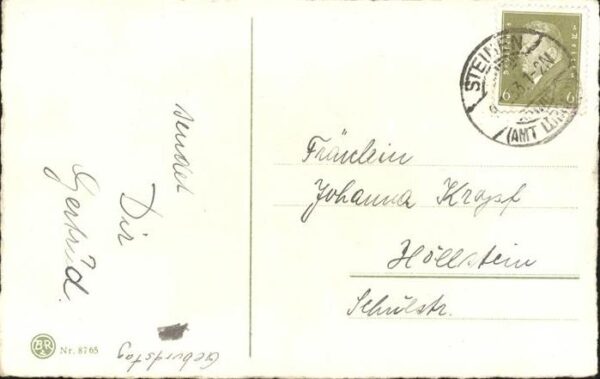 sendet
Dir
Gertrud.
Geburtstag
BR
Nr. 8765
6 6
STEINEN
1-2N
(AMT LÖRR
Fräulein
Johanna Kropf
Höllstein
Schulstr.